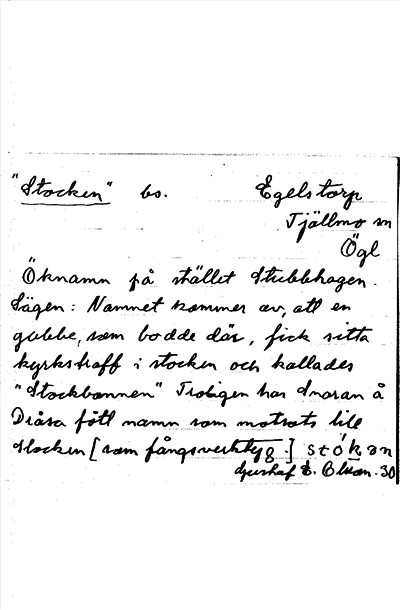 "Stocken" bo. Egelstorp
Tjällmo sn
Ögl
Öknamn på stället Stubbhagen.
Sägen: Namnet kommer av, att en
gubbe, som bodde där, fick sitta
kyrkstraff i stocken och kallades
"Stockbonnen" Troligen har Snaran å
Djåsa fått namn som motsats till
stocken [som fångsverktyg.] stókan
E. Olsson. 30